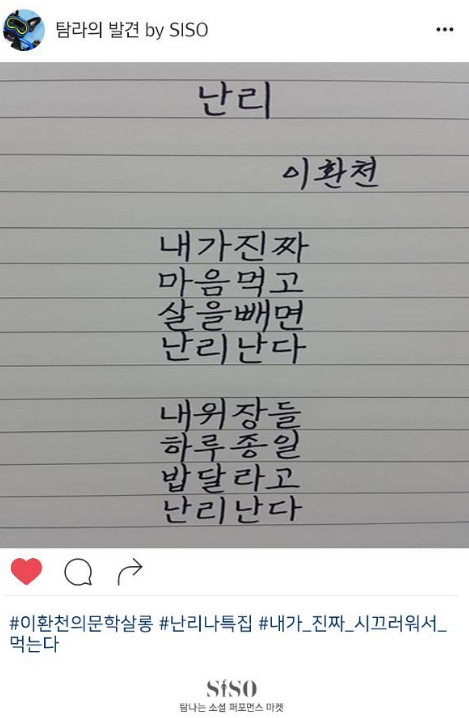 탐라의 발견 by SISO
난리
이환천
내가진짜
마음먹고
살을빼면
난리난다
내위장들
하루종일
밥달라고
난리난다
#이환천의문학살롱 #난리나특집 #내가_진짜_시끄러워서_
먹는다
SISO
탐나는 소셜 퍼포먼스 마켓